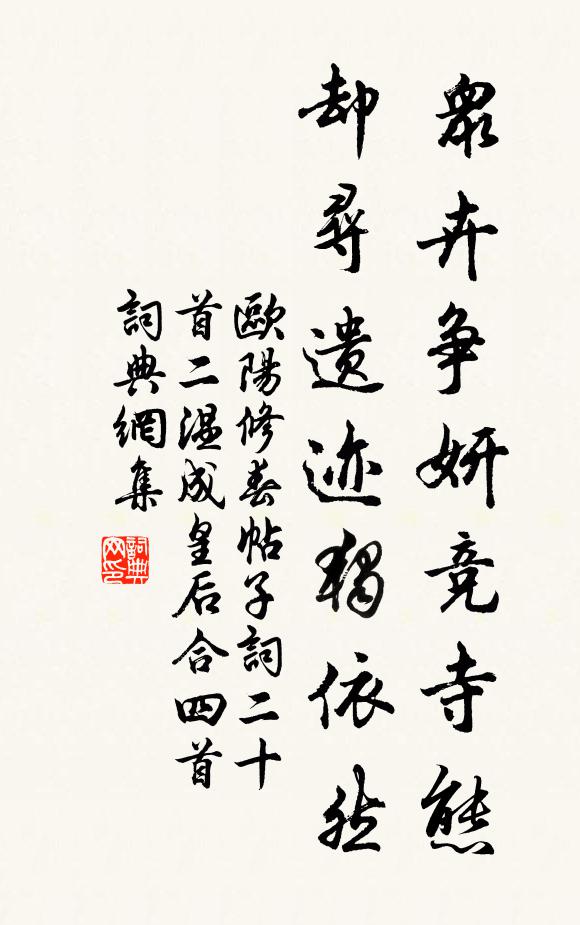 眾卉争妍竞寺態
却尋遗迹獨依然
歐陽修春帖子詞二十
首二温成皇后合四首
詞典網集
詞典网印